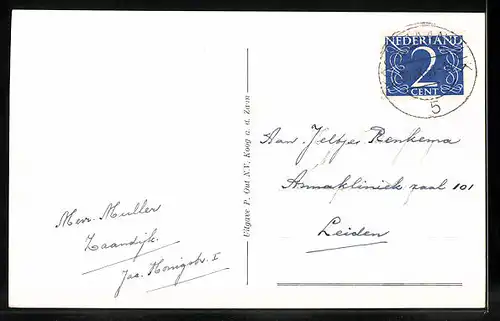 NEDERLAND
2
CENT
5
Uitgave P. Out N.V. Koog a. d. Zaan
Aan Jeltjes Renkema
Annakliniek zaal 101
Leiden
Mevr. Muller
Zaandijk.
Jac. Honigstr. I